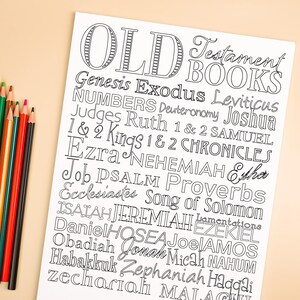 OLD Testament
BOOKS
Genesis Exodus Leviticus
NUMBERS Deuteronomy Joshua
Judges Ruth 1 & 2 SAMUEL
1 & 2 Kings 1 & 2 CHRONICLES
Ezra NEHEMIAH Esther
Job PSALM Proverbs
Ecclesiastes Song of Solomon
ISAIAH JEREMIAH Lamentations
EZEKIEL
Daniel HOSEA Joel AMOS
Obadiah Jonah Micah NAHUM
Habakkuk Zephaniah Haggai
zechariah MALACHI